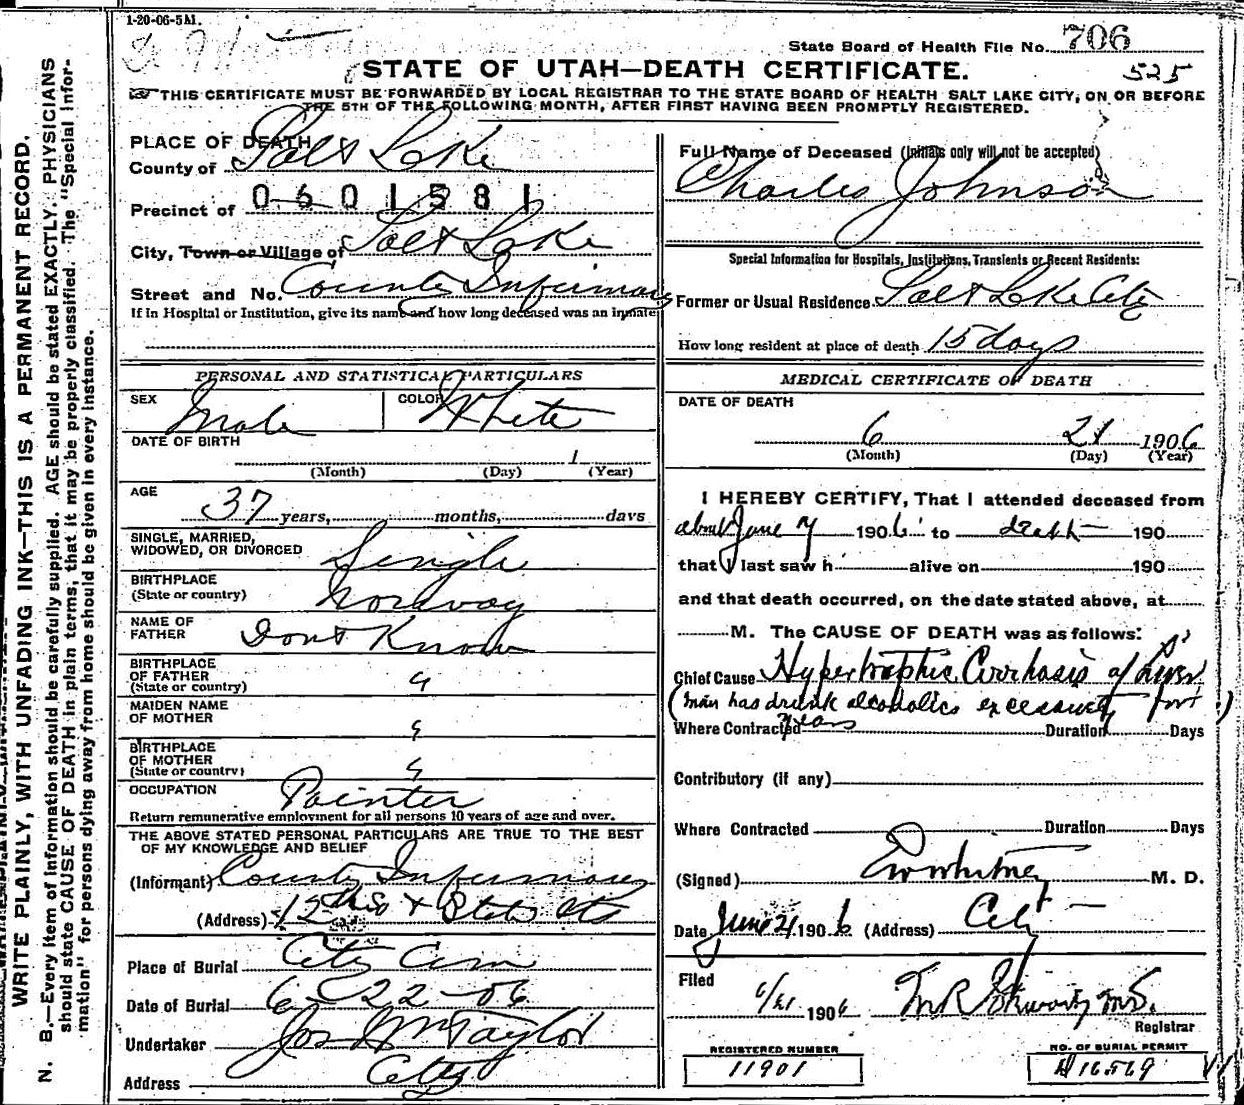 1-20-06-5M.
State Board of Health File No. 706
525
STATE OF UTAH—DEATH CERTIFICATE.
THIS CERTIFICATE MUST BE FORWARDED BY LOCAL REGISTRAR TO THE STATE BOARD OF HEALTH SALT LAKE CITY, ON OR BEFORE
THE 5TH OF THE FOLLOWING MONTH, AFTER FIRST HAVING BEEN PROMPTLY REGISTERED.
WRITE PLAINLY, WITH UNFADING INK—THIS IS A PERMANENT RECORD.
N. B.—Every item of information should be carefully supplied. AGE should be stated EXACTLY. PHYSICIANS
should state CAUSE OF DEATH in plain terms, that it may be properly classified. The "Special Infor-
mation" for persons dying away from home should be given in every instance.
PLACE OF DEATH
County of Salt Lake
Precinct of 0601581
City, Town or Village of Salt Lake
Street and No. County Infirmary
If in Hospital or Institution, give its name and how long deceased was an inmate
PERSONAL AND STATISTICAL PARTICULARS
SEX Male COLOR White
DATE OF BIRTH
1
(Month) (Day) (Year)
AGE
37 years, months, days
SINGLE, MARRIED,
WIDOWED, OR DIVORCED Single
BIRTHPLACE
(State or country) Norway
NAME OF
FATHER Dont Know
BIRTHPLACE
OF FATHER
(State or country)
MAIDEN NAME
OF MOTHER
BIRTHPLACE
OF MOTHER
(State or country)
OCCUPATION Painter
Return remunerative employment for all persons 10 years of age and over.
THE ABOVE STATED PERSONAL PARTICULARS ARE TRUE TO THE BEST
OF MY KNOWLEDGE AND BELIEF
(Informant) County Infirmary
(Address) 12th So & State Sts
Place of Burial City Cem
Date of Burial 6-22-06
Undertaker Jos Wm Taylor
Address City
Full Name of Deceased (Initials only will not be accepted)
Charles Johnson
Special Information for Hospitals, Institutions, Transients or Recent Residents:
Former or Usual Residence Salt Lake City
How long resident at place of death 15 days
MEDICAL CERTIFICATE OF DEATH
DATE OF DEATH
6 21 1906
(Month) (Day) (Year)
I HEREBY CERTIFY, That I attended deceased from
about June 7 1906 to death 190
that I last saw h alive on 190
and that death occurred, on the date stated above, at
M. The CAUSE OF DEATH was as follows:
Chief Cause Hypertrophic Cirrhosis of Liver
(Man has drunk alcoholics excessively for
years)
Where Contracted Duration Days
Contributory (if any)
Where Contracted Duration Days
(Signed) EWWhitney M. D.
Date June 21 1906 (Address) City
Filed
6/21 1906 M.D.
Registrar
REGISTERED NUMBER
11901
NO. OF BURIAL PERMIT
A 16569